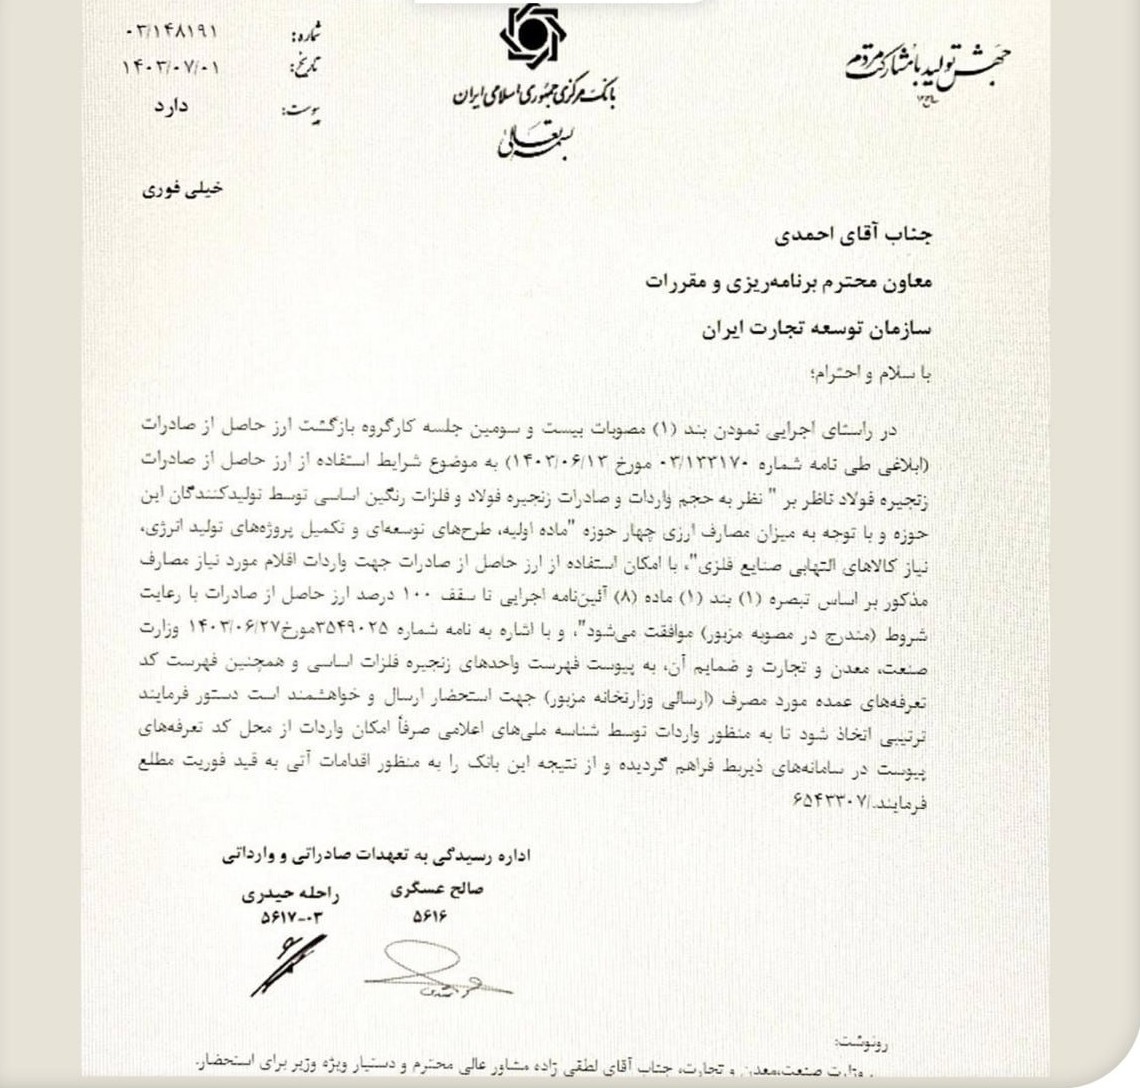 جهش تولید با مشارکت مردم
بانک مرکزی جمهوری اسلامی ایران
بسمه تعالی
شماره: ۰۳/۱۴۸۱۹۱
تاریخ: ۱۴۰۳/۰۷/۰۱
پیوست: دارد
خیلی فوری
جناب آقای احمدی
معاون محترم برنامه‌ریزی و مقررات
سازمان توسعه تجارت ایران
با سلام و احترام؛
در راستای اجرایی نمودن بند (۱) مصوبات بیست و سومین جلسه کارگروه بازگشت ارز حاصل از صادرات
(ابلاغی طی نامه شماره ۰۳/۱۳۳۱۷۰ مورخ ۱۴۰۳/۰۶/۱۳) به موضوع شرایط استفاده از ارز حاصل از صادرات
زنجیره فولاد ناظر بر " نظر به حجم واردات و صادرات زنجیره فولاد و فلزات رنگین اساسی توسط تولیدکنندگان این
حوزه و با توجه به میزان مصارف ارزی چهار حوزه "ماده اولیه، طرح‌های توسعه‌ای و تکمیل پروژه‌های تولید انرژی،
نیاز کالاهای التهابی صنایع فلزی"، با امکان استفاده از ارز حاصل از صادرات جهت واردات اقلام مورد نیاز مصارف
مذکور بر اساس تبصره (۱) بند (۱) ماده (۸) آئین‌نامه اجرایی تا سقف ۱۰۰ درصد ارز حاصل از صادرات با رعایت
شروط (مندرج در مصوبه مزبور) موافقت می‌شود"، و با اشاره به نامه شماره ۳۵۴۹۰۲۵مورخ۱۴۰۳/۰۶/۲۷ وزارت
صنعت، معدن و تجارت و ضمایم آن، به پیوست فهرست واحدهای زنجیره فلزات اساسی و همچنین فهرست کد
تعرفه‌های عمده مورد مصرف (ارسالی وزارتخانه مزبور) جهت استحضار ارسال و خواهشمند است دستور فرمایند
ترتیبی اتخاذ شود تا به منظور واردات توسط شناسه ملی‌های اعلامی صرفاً امکان واردات از محل کد تعرفه‌های
پیوست در سامانه‌های ذیربط فراهم گردیده و از نتیجه این بانک را به منظور اقدامات آتی به قید فوریت مطلع
فرمایند./۶۵۴۳۳۰۷
اداره رسیدگی به تعهدات صادراتی و وارداتی
صالح عسگری راحله حیدری
۵۶۱۶ ۵۶۱۷-۰۳
رونوشت:
وزارت صنعت،معدن و تجارت، جناب آقای لطفی زاده مشاور عالی محترم و دستیار ویژه وزیر برای استحضار.